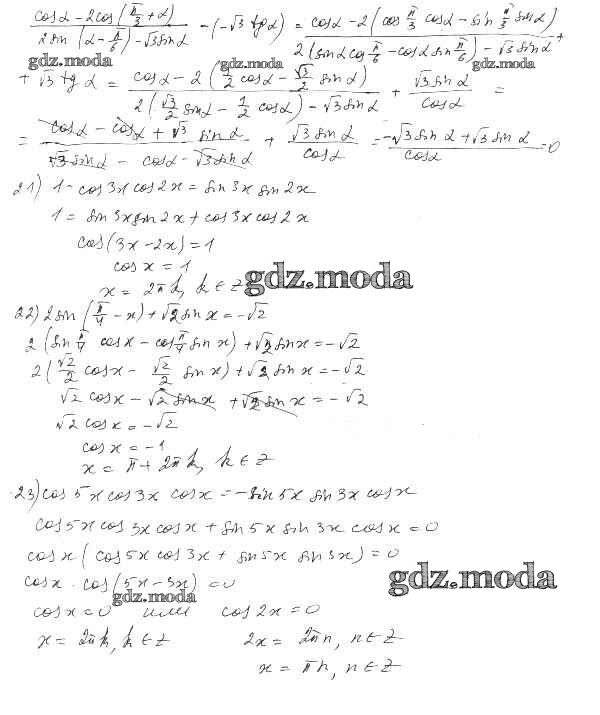 (cosα - 2cos(π/3 + α))/(2sin(α - π/6) - √3 sinα) - (-√3 tgα) = (cosα - 2(cos π/3 cosα - sin π/3 sinα))/(2(sinα cos π/6 - cosα sin π/6) - √3 sinα) +
gdz.moda gdz.moda
+ √3 tgα = (cosα - 2(1/2 cosα - √3/2 sinα))/(2(√3/2 sinα - 1/2 cosα) - √3 sinα) + √3 sinα/cosα =
= (cosα - cosα + √3 sinα)/(√3 sinα - cosα - √3 sinα) + √3 sinα/cosα = (-√3 sinα + √3 sinα)/cosα = 0
21) 1 - cos3x cos2x = sin3x sin2x
1 = sin3x sin2x + cos3x cos2x
cos(3x - 2x) = 1
cos x = 1
x = 2πk, k ∈ Z
gdz.moda
22) 2sin(π/4 - x) + √2 sinx = -√2
2(sin π/4 cosx - cos π/4 sinx) + √2 sinx = -√2
2(√2/2 cosx - √2/2 sinx) + √2 sinx = -√2
√2 cosx - √2 sinx + √2 sinx = -√2
√2 cosx = -√2
cosx = -1
x = π + 2πk, k ∈ Z
23) cos5x cos3x cosx = -sin5x sin3x cosx
cos5x cos3x cosx + sin5x sin3x cosx = 0
cosx(cos5x cos3x + sin5x sin3x) = 0
cosx · cos(5x - 3x) = 0
gdz.moda gdz.moda
cosx = 0 или cos2x = 0
x = 2πk, k ∈ Z 2x = 2πn, n ∈ Z
x = πn, n ∈ Z